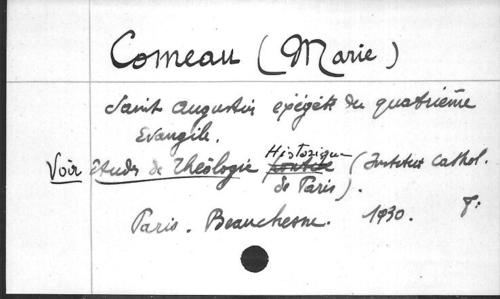 Comeau (Marie)
Saint Augustin exégète du quatrième
Evangile.
Voir études de Théologie Historique (Institut Cathol.
de Paris).
Paris. Beauchesne. 1930.